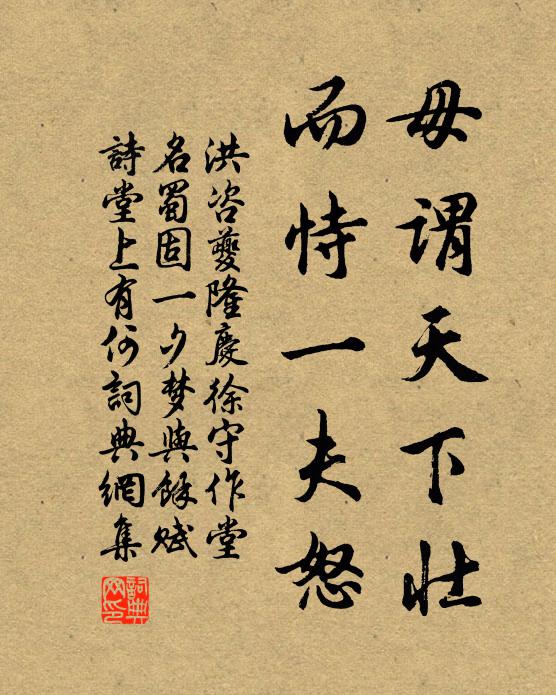 毋谓天下壮
而恃一夫怒
洪咨夔隆庆徐守作堂
名蜀固一夕梦与余赋
詩堂上有何詞典網集
詞典網印